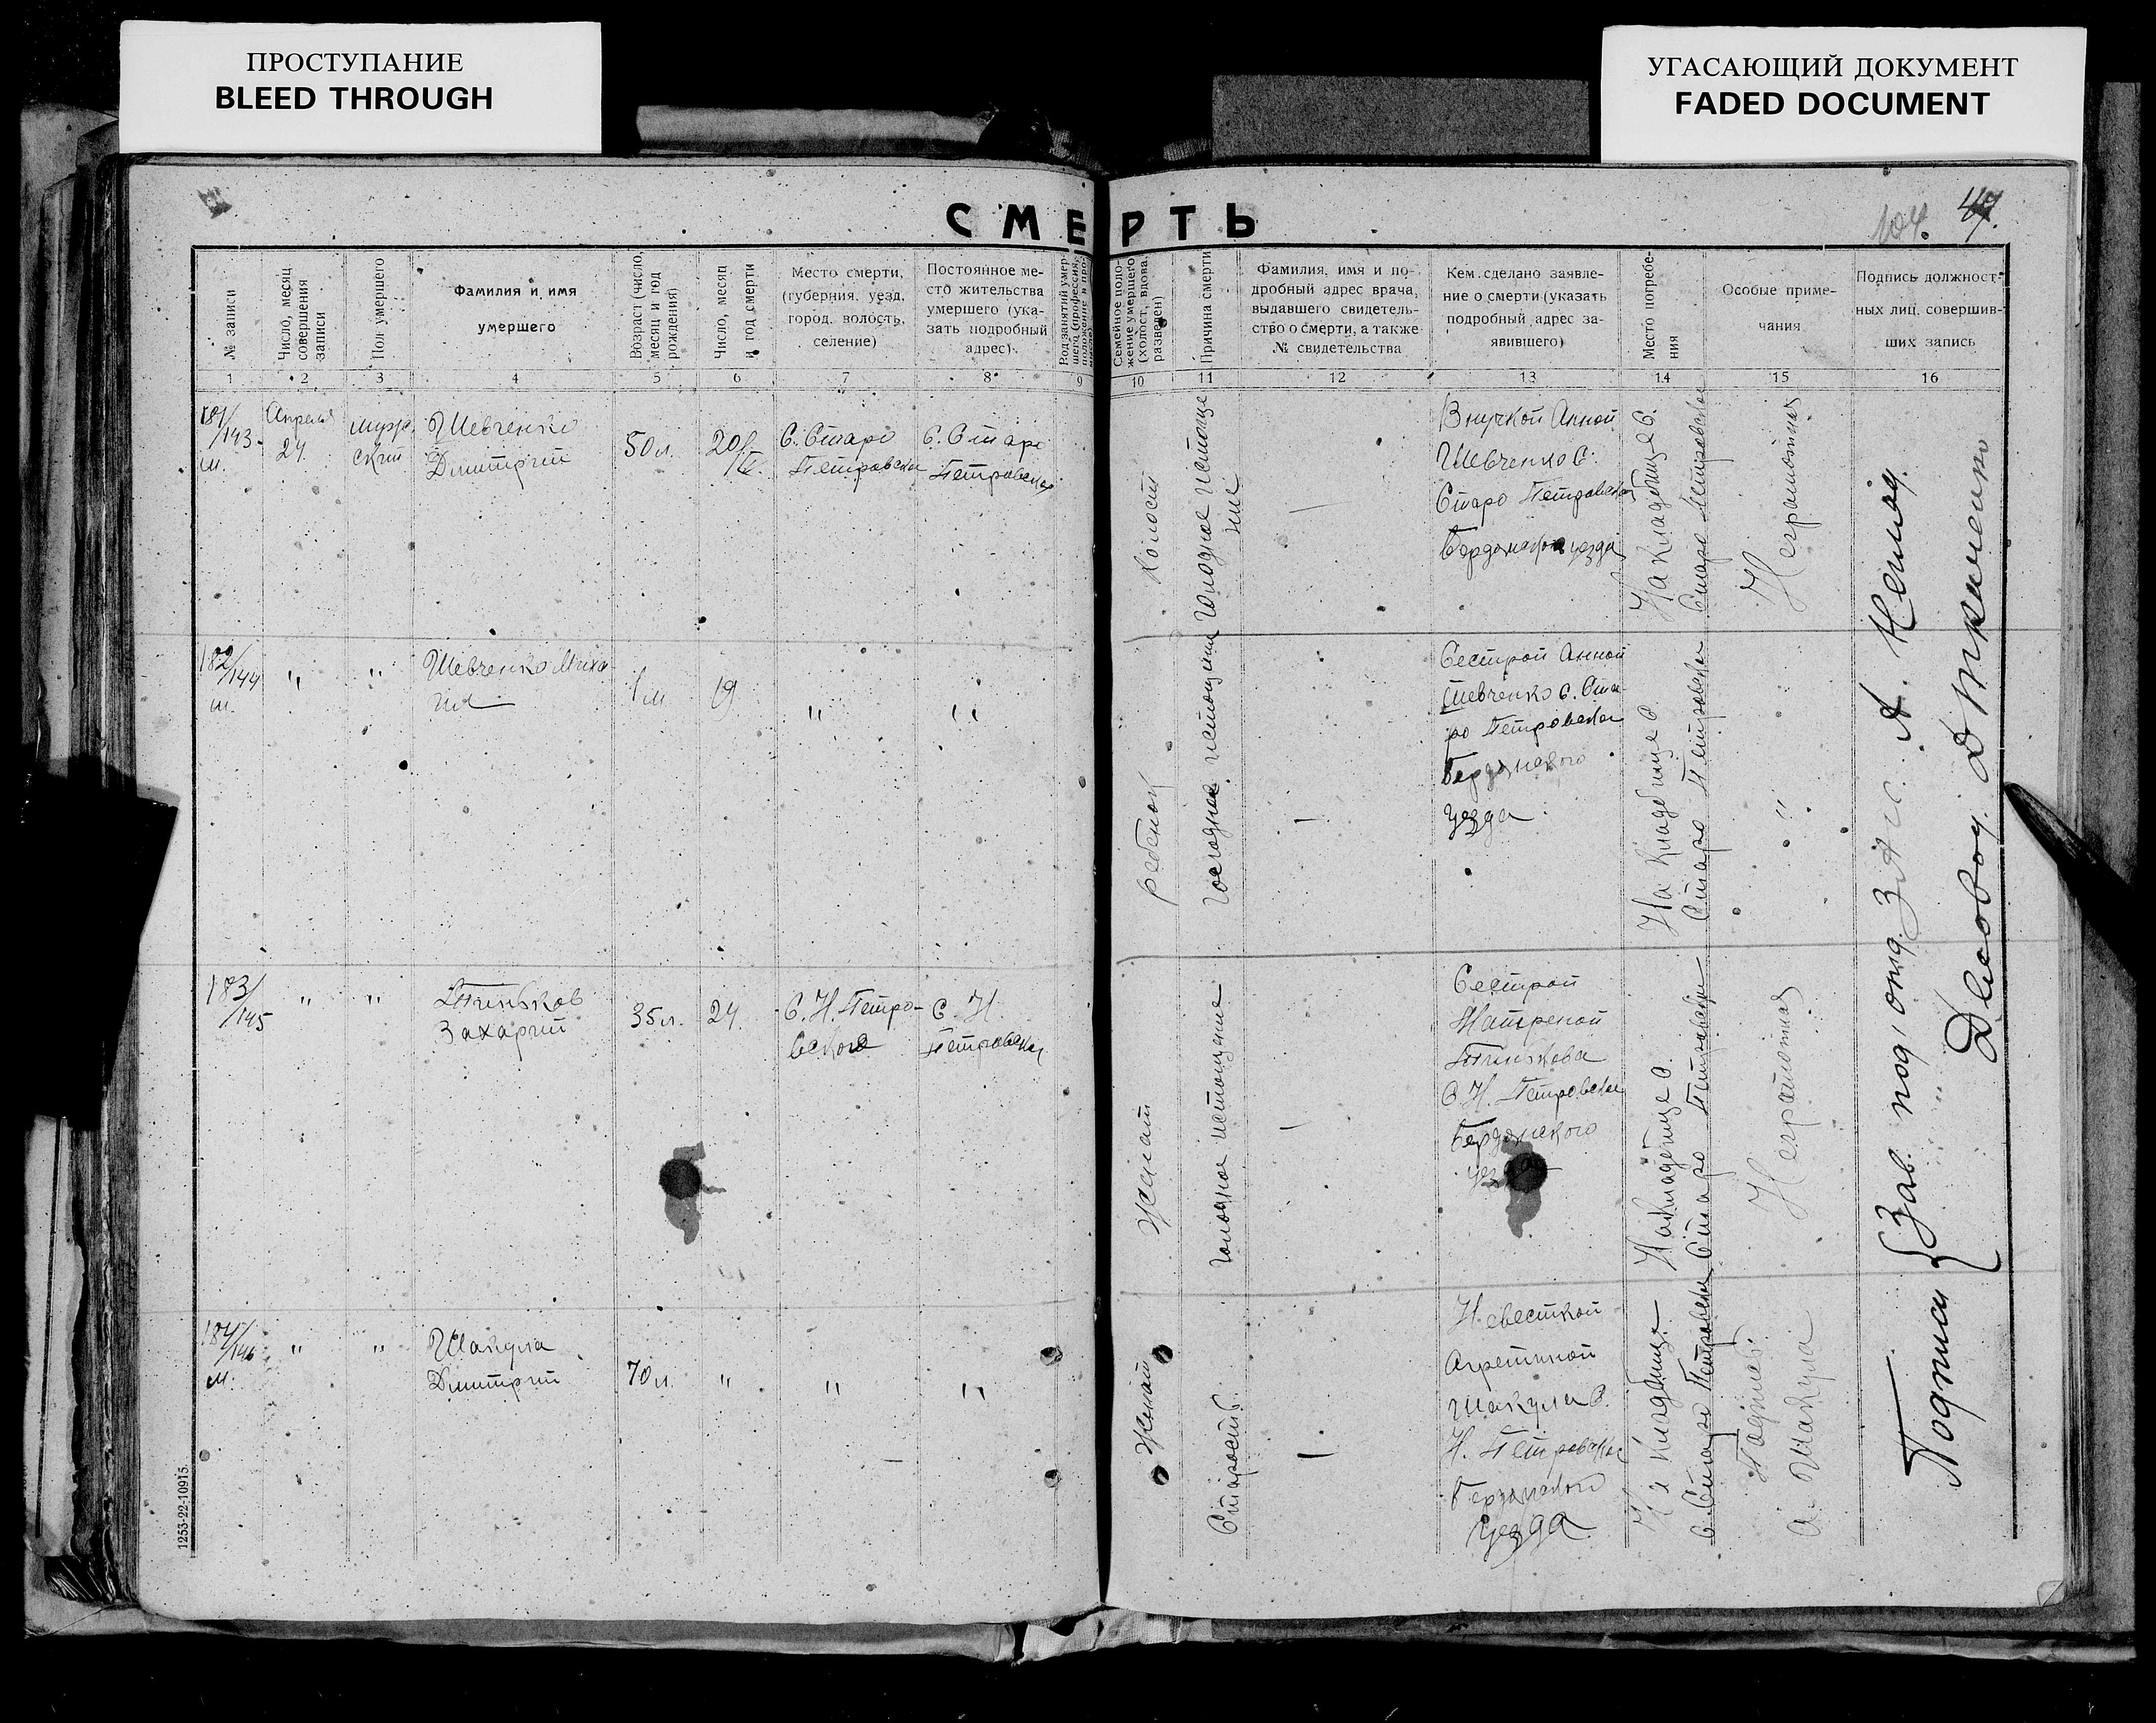 ПРОСТУПАНИЕ
BLEED THROUGH
УГАСАЮЩИЙ ДОКУМЕНТ
FADED DOCUMENT
104. 47.
СМЕРТЬ
№ записи
Число, месяц
совершения
записи
Пол умершего
Фамилия и имя
умершего
Возраст (число,
месяц и год
рождения)
Число, месяц
и год смерти
Место смерти,
(губерния, уезд,
город, волость,
селение)
Постоянное ме-
сто жительства
умершего (ука-
зать подробный
адрес).
Род занятий умер-
шего (профессия,
положение в про-
Семейное поло-
жение умершего
(холост, вдова,
разведен)
Причина смерти
Фамилия, имя и по-
дробный адрес врача,
выдавшего свидетель-
ство о смерти, а также
№ свидетельства
Кем сделано заявле-
ние о смерти (указать
подробный адрес за-
явившего)
Место погребе-
ния
Особые приме-
чания
Подпись должност-
ных лиц, совершив-
ших запись
1 2 3 4 5 6 7 8 9 10 11 12 13 14 15 16
181/143
м.
Апреля
24
муж
ский
Шевченко
Дмитрий
50 л.
20/IV.
С. Старо
Петровка
С. Старо
Петровская
холост
Голодное истоще
ние
—
Внучкой Анной
Шевченко С.
Старо Петровская
Бердянского уезда
На кладбище С.
Старо Петровской
Неграмотная
182/144
м.
" "
Шевченко Миха-
ил
1 м
19
" "
ребенок
голодное истощение
—
Сестрой Анной
Шевченко С. Ста-
ро Петровска
Бердянского
уезда
На кладбище С.
Старо Петровска
"
183/145
" "
Захарий
35 л.
24
С. Н. Петро-
вского
С. Н
Петровска
женат
голодное истощение
—
Сестрой
С Н. Петровска
Бердянского
уезда
На кладбище С.
Старо Петровки
Неграмотная
184/146
м.
" "
Шакула
Дмитрий
70 л.
"
" "
Женат
Старость
—
Невесткой
Шакула С.
Н. Петровской
Бердянского
уезда
На кладбище
С Старо Петровки
Подпись:
А. Шакула
Подписи { Зав. под'отд. ЗАГС. А.
Деловод. Д Ткаченко
1253-22-10915.